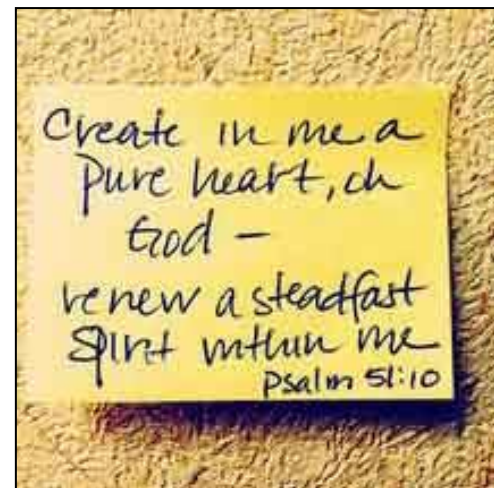 Create in me a
pure heart, oh
God –
renew a steadfast
spirit within me
Psalm 51:10